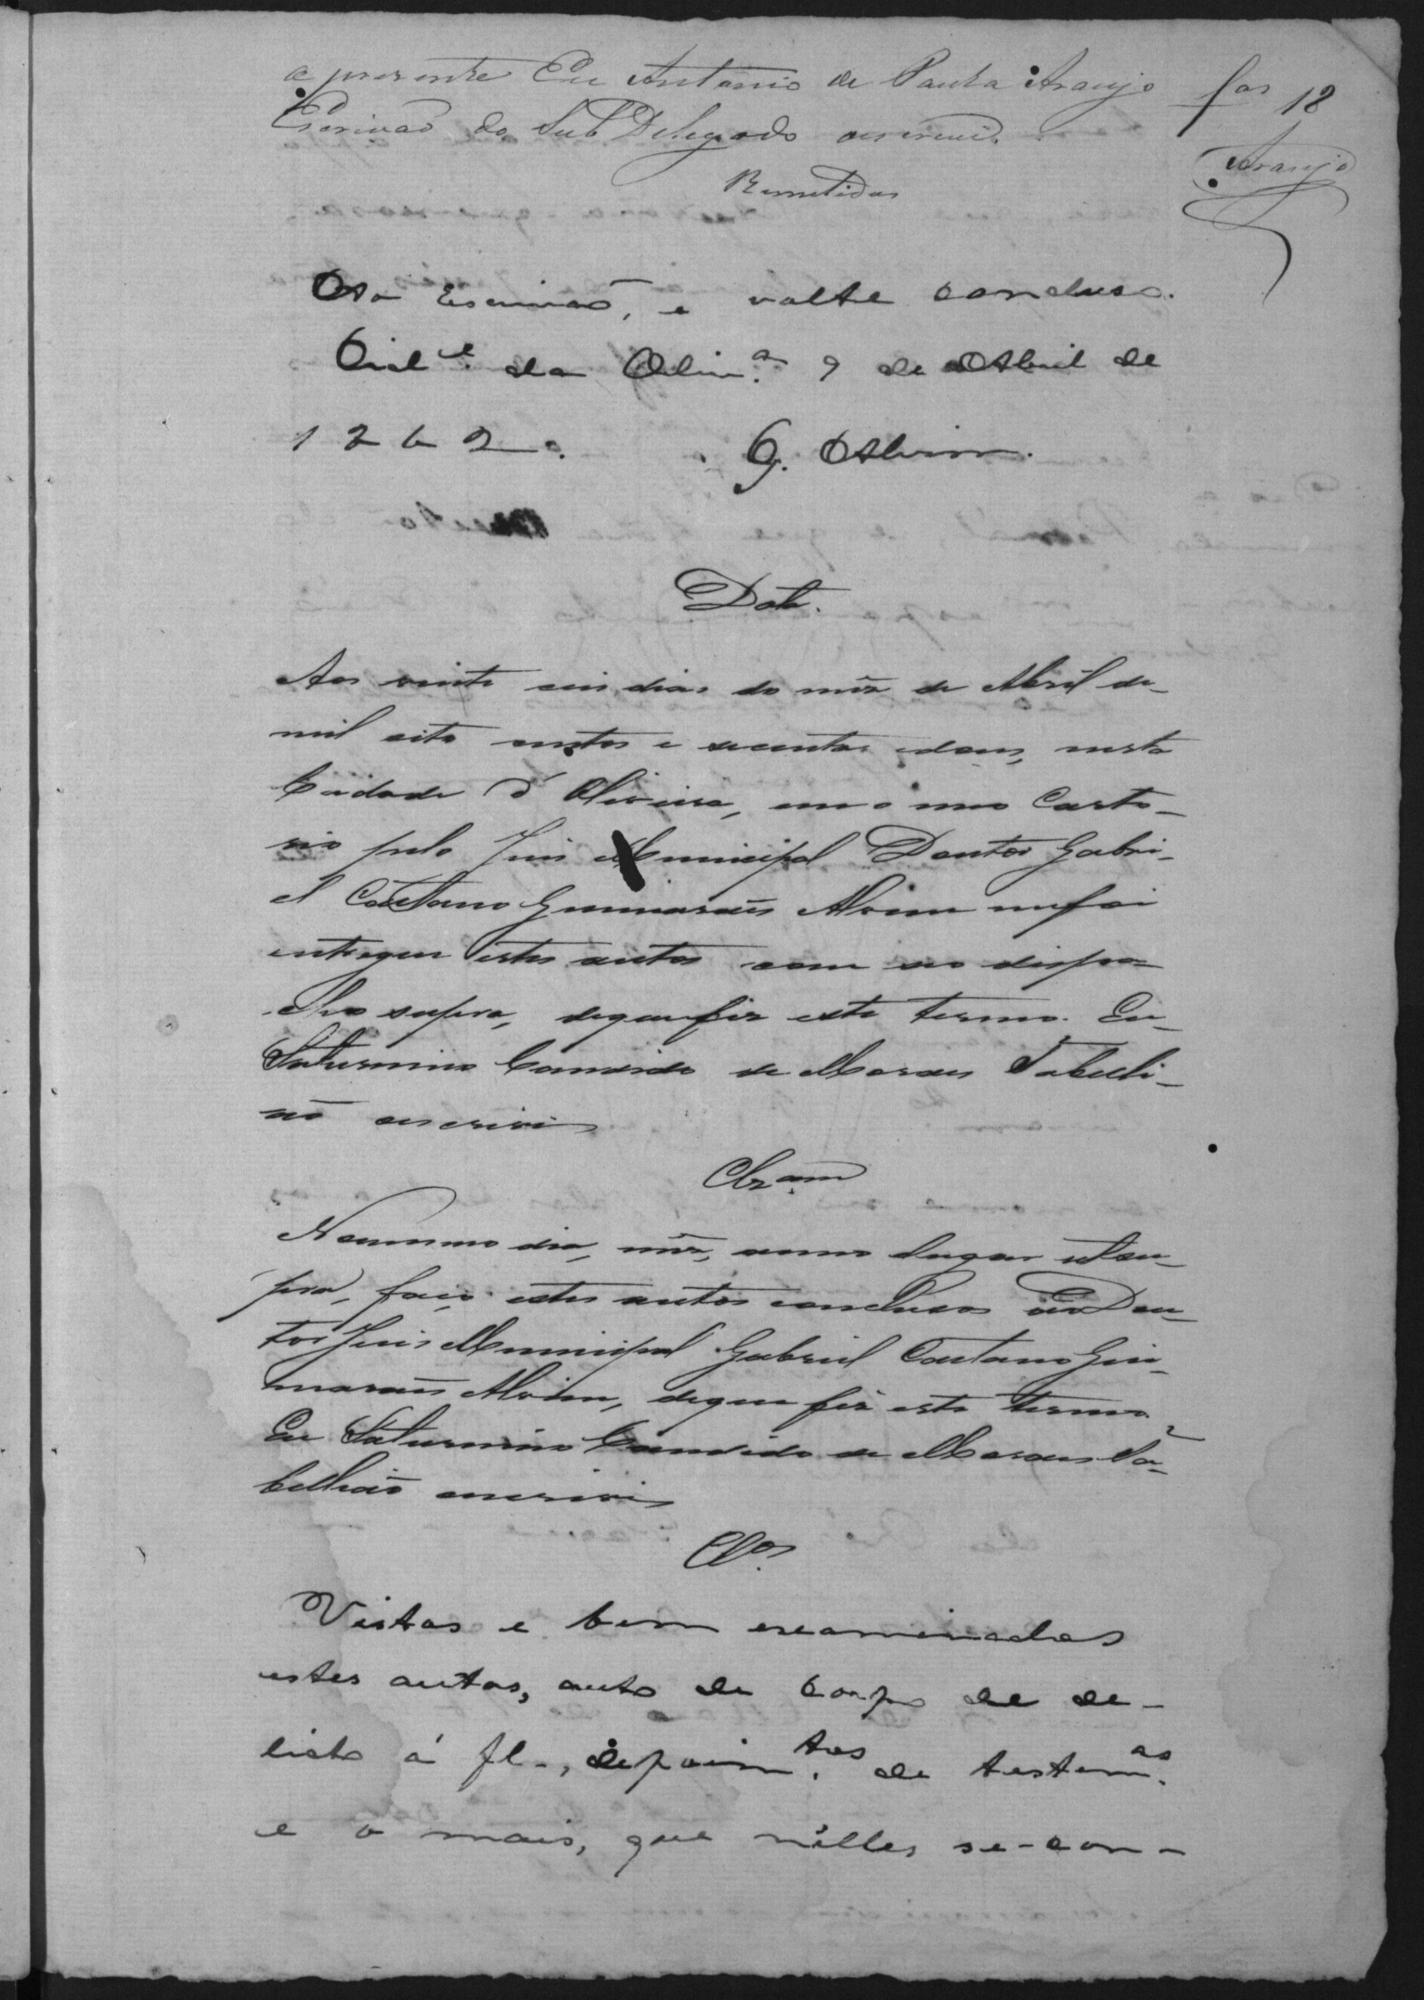 a presente Eu Antonio de Paula Araujo
Escrivaõ do Sub Delegado o escrevi.
fas 18
Araujo
Remetidos
Ao Escrivaõ, e volte concluso.
Cid.e da Oliv.a 9 de Abril de
1862. G. Alvim.
Data.
Aos vinte seis dias do mez de Abril de
mil oito centos e secenta e dous, nesta
Cidade d'Oliveira, em o meo Carto-
rio pelo Juis Municipal Doutor Gabri-
el Caetano Guimaraẽs Alvim me foi
entregue estes autos com seo dispa-
cho supra, de que fiz este termo. Eu
Saturnino Candido de Moraes Tabeli-
aõ escrivi
Clzam
No mesmo dia, mez, anno lugar et su-
pra, faço estes autos conclusos ao Dou-
tor Juis Municipal Gabriel Caetano Gui-
maraẽs Alvim, de que fiz este termo
Eu Saturnino Candido de Moraes Ta-
belliaõ escrivi
Clos.
Vistos e bem examinados
estes autos, auto de corpo de de-
licto á fl-, depoim.tos de testem.as
e o mais, que n'elles se-con-